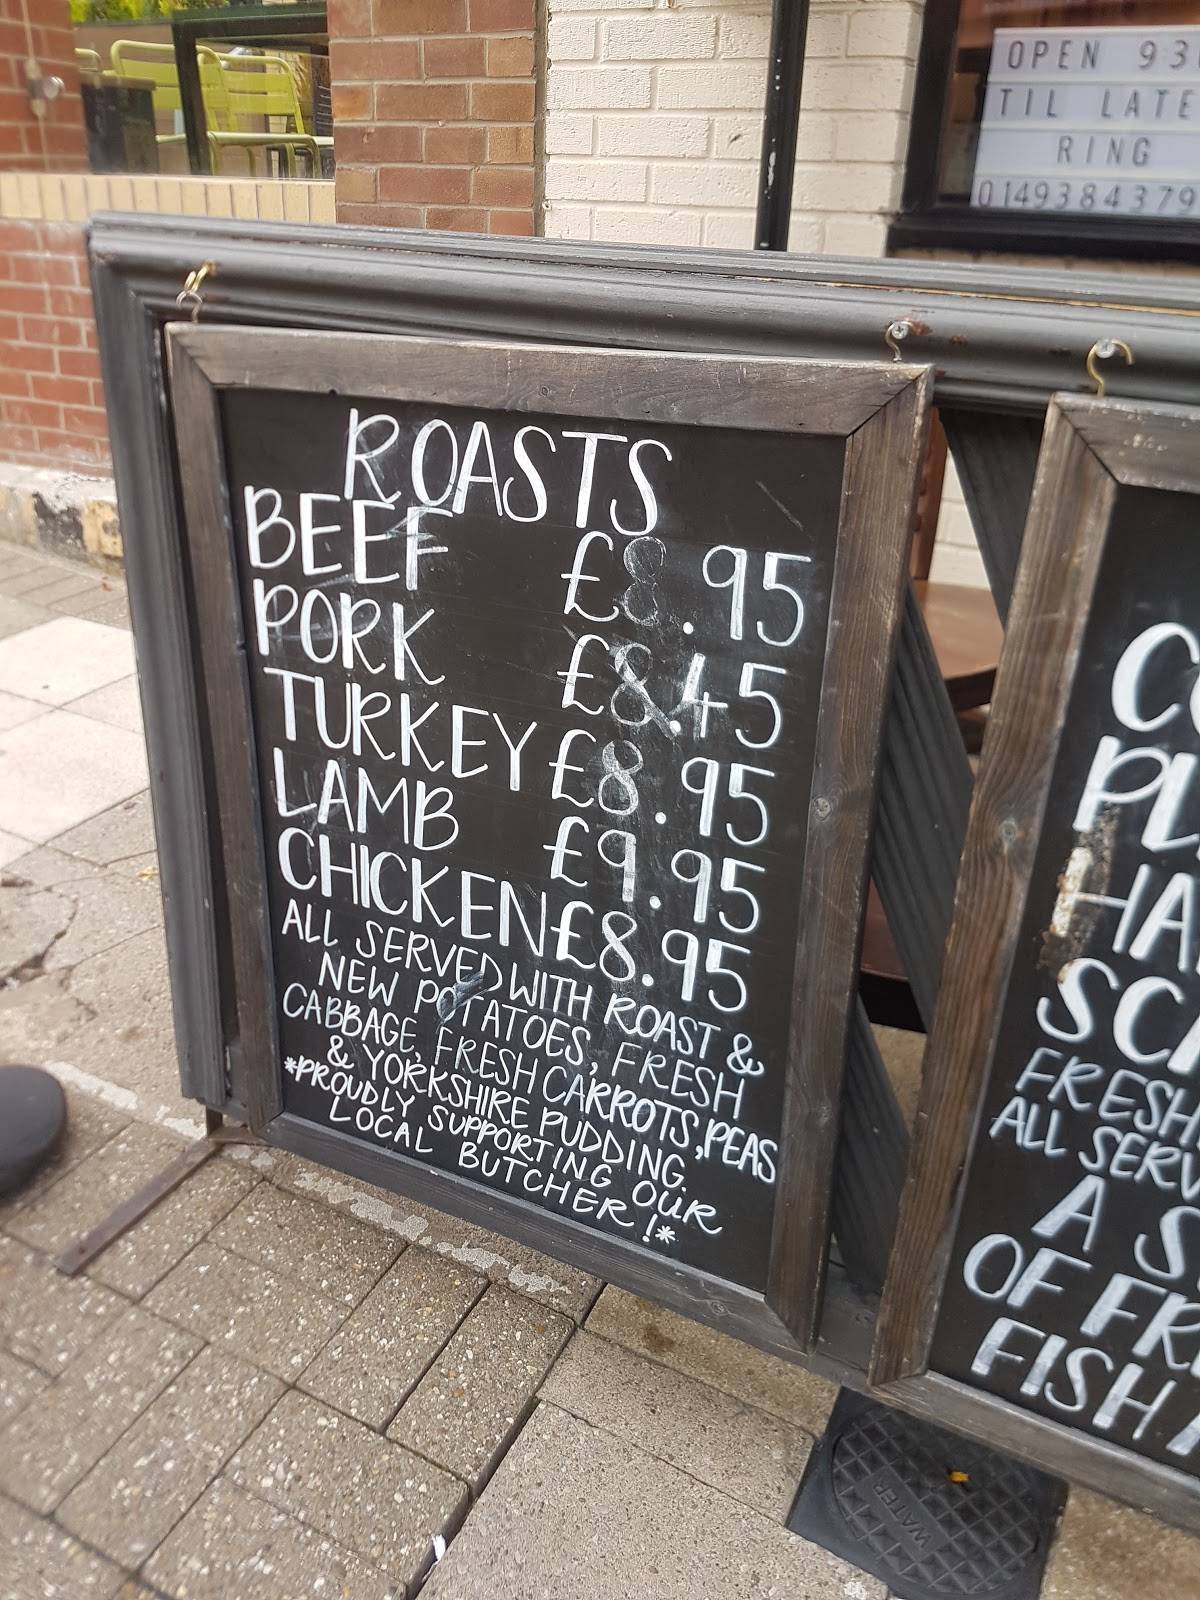 OPEN 93
TIL LATE
RING
0149384379
ROASTS
BEEF £8.95
PORK £8.45
TURKEY £8.95
LAMB £9.95
CHICKEN £8.95
ALL SERVED WITH ROAST &
NEW POTATOES, FRESH
CABBAGE, FRESH CARROTS, PEAS
& YORKSHIRE PUDDING.
*PROUDLY SUPPORTING OUR
LOCAL BUTCHER!*
FRESH
ALL SERV
A S
OF FR
FISH
WATER